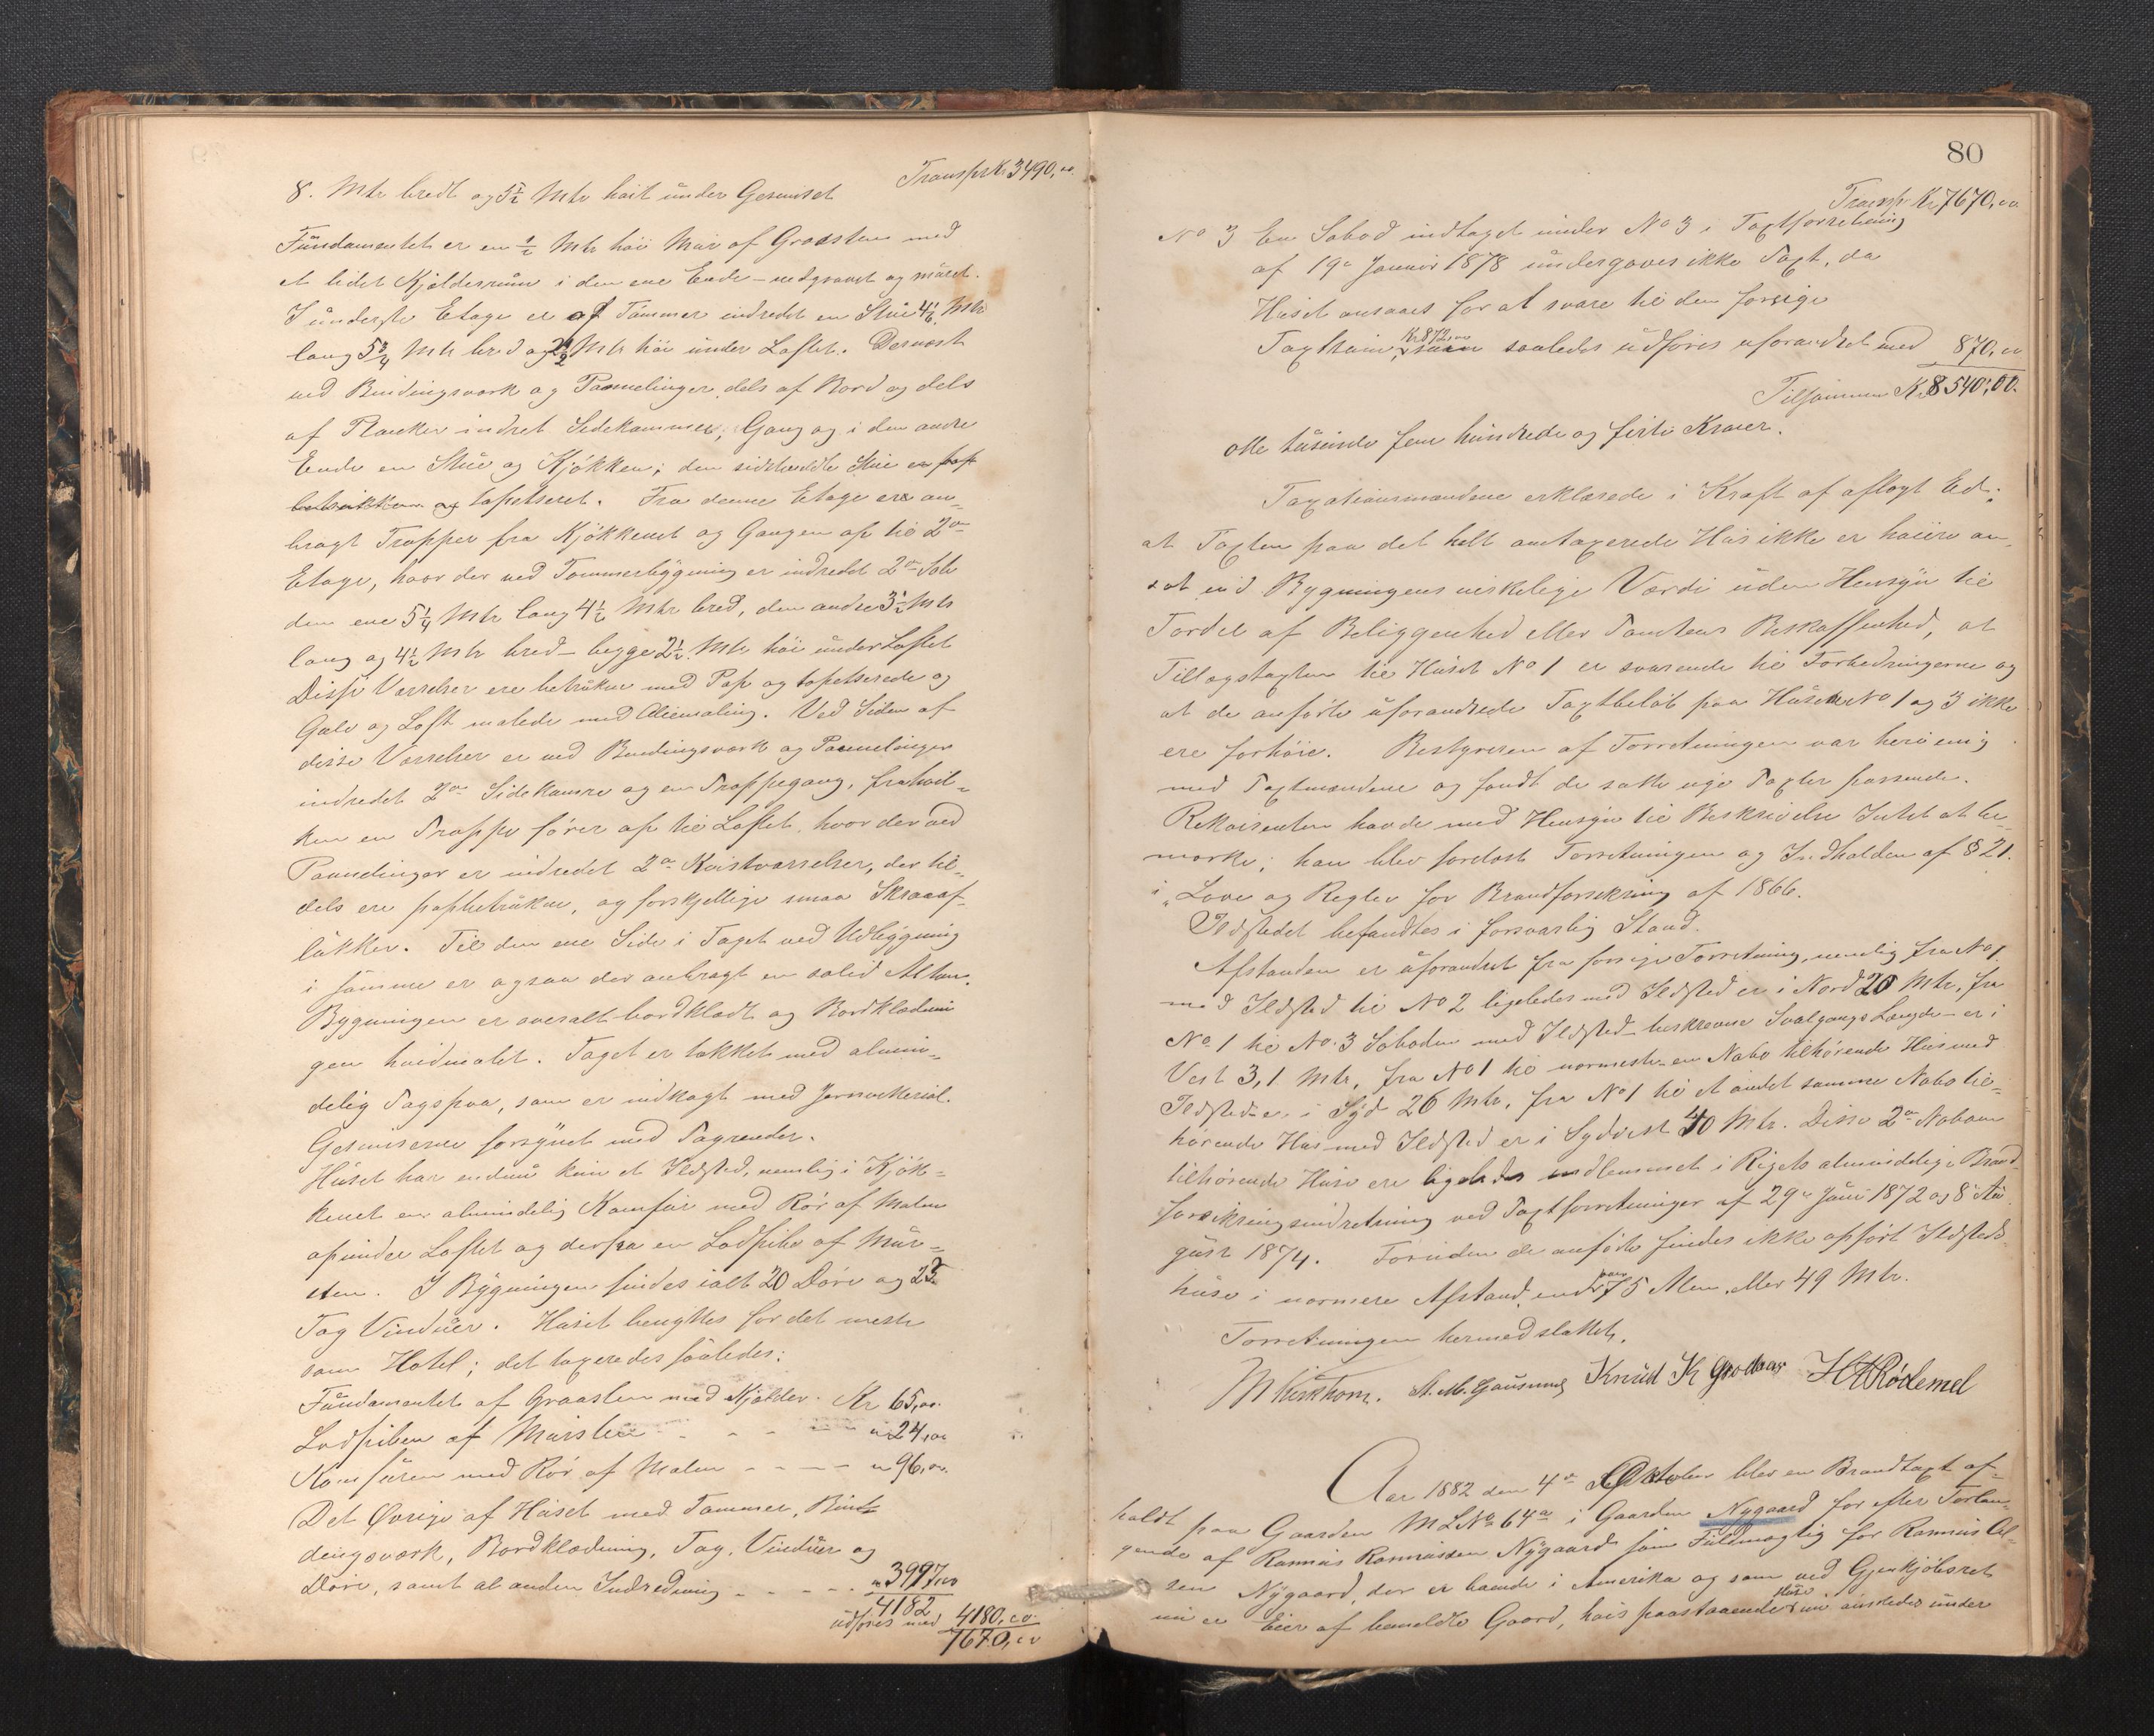 Transp. Kr 3490,00
8. Mtr bredt og 5½ Mtr høit under Gesimset
Fundamentet er en ½ Mtr høi Mur af Graasten med
et lidet Kjælderrum i den ene Ende – nedgravet og muret.
I underste Etage er af Tømmer indredet en Stue 4½ Mtr
lang 5¾ Mtr bred og 2½ Mtr høi under Loftet. Dernæst
ved Bindingsværk og Pannelinger dels af Bord og dels
af Planker indret Sidekammer, Gang og i den andre
Ende en Stue og Kjøkken; den sidstmeldte Stue er pap
betrukken og tapetseret. Fra denne Etage ere an-
bragt Trapper fra Kjøkkenet og Gangen op til 2en
Etage, hvor der ved Tømmerbygning er indredet 2de Sale
den ene 5¼ Mtr lang 4½ Mtr bred, den andre 3½ Mtr
lang og 4½ Mtr bred – begge 2½ Mtr høi under Loftet
Disse Værelser ere betrukne med Pap og tapetserede og
Gulv og Loft malede med Oliemaling. Ved Siden af
disse Værelser er ved Bindingsværk og Pannelinger
indredet 2de Sidekamre og en Trappegang, fra hvil-
ken en Trappe fører op til Loftet, hvor der ved
Pannelinger er indredet 2de Kvistværelser, der til-
dels ere papbetrukne, og forskjellige smaa Skraaaf-
lukker. Til den ene Side i Taget ved Udbygning
i samme er ogsaa der anbragt en solid Altan.
Bygningen er overalt bordklædt og Bordklædnin
gen hvidmalet. Taget er tækket med almin-
delig Tagspaa, som er indkogt med Jernvikteriol.
Gesimserne forsynet med Tagrender.
Huset har endnu kun et Ildsted, nemlig i Kjøk-
kenet en almindelig Komfur med Rør af Malm
op under Loftet og derfra en Lodpibe af Mur-
sten. I Bygningen findes ialt 20 Døre og 23
Fag Vinduer. Huset benyttes for det meste
som Hotel; det taxeredes saaledes:
Fundamentet af Graasten med Kjælder. Kr 65,00.
Lodpiben af Mursten - - - - " 24,00
Komfuren med Rør af Malm - - - - " 96,00.
Det Øvrige af Huset med Tømmer, Bin-
dingsværk, Bordklædning, Tag, Vinduer og
Døre, samt al anden Indredning - - - - " 3997,00
4182
udføres med 4180,00
7670,00
80
Transp. Kr 7670,00
No 3 En Søbod indtaget under No 3 i Taxtforretning
af 19de Januar 1878 undergaves ikke Taxt, da
Huset ansaaes for at svare til den forrige
Kr 872,00
Taxtsum, som saaledes udføres uforandret med 870,00
Tilsammen Kr 8540,00.
otte tusinde fem hundrede og firti Kroner.
Taxationsmændene erklærede i Kraft af aflagt Ed:
at Taxten paa det helt omtaxerede Hus ikke er høiere an-
sat end Bygningens virkelige Værdi uden Hensyn til
Fordel af Beliggenhed eller Tomtens Beskaffenhed, at
Tillægstaxten til Huset No 1 er svarende til Forbedringerne og
at de anførte uforandrede Taxtbeløb paa Husene No 1 og 3 ikke
ere forhøie. Bestyreren af Forretningen var heri enig
med Taxtmændene og fandt de satte nye Taxter passende.
Rekvisenten havde med Hensyn til Beskrivelse Intet at be-
mærke; han blev forelæst Forretningen og Indholden af § 21.
i „Love og Regler for Brandforsikring af 1866.
Ildstedet befandtes i forsvarlig Stand.
Afstanden er uforandret fra forrige Forretning, nemlig fra No 1
med Ildsted til No 2 ligeledes med Ildsted er i Nord 20 Mtr, fra
No 1 til No 3 Søboden med Ildsted beskrevne Svalgangs Længde – er i
Vest 3,1 Mtr, fra No 1 til nærmeste en Nabo tilhørende Hus med
Ildsted er i Syd 26 Mtr, fra No 1 til et andet samme Nabo til-
hørende Hus med Ildsted er i Sydvest 40 Mtr. Disse 2de Naboen
tilhørende Huse ere ligeledes indlemmet i Rigets almindelige Brand-
forsikringsindretning ved Taxtforretninger af 29de Juni 1872 og 8de Au
gust 1874. Foruden de anførte findes ikke opført Ildsteds-
huse i nærmere Afstand, end 75 Alen, eller 49 Mtr.
Forretningen hermed sluttet.
Knud K Grodaas H A Rødemel
Aar 1882 den 4de Oktober blev en Brandtaxt af-
holdt paa Gaarden ML No 64a i Gaarden Nygaard for efter Forlan-
gende af Rasmus Rasmussen Nygaard som Fuldmægtig for Rasmus Ol-
sen Nygaard, der er boende i Amerika og som ved Gjenkjøbsret
Huse
nu er Eier af bemeldte Gaard, hvis paastaaende nu ønskedes under